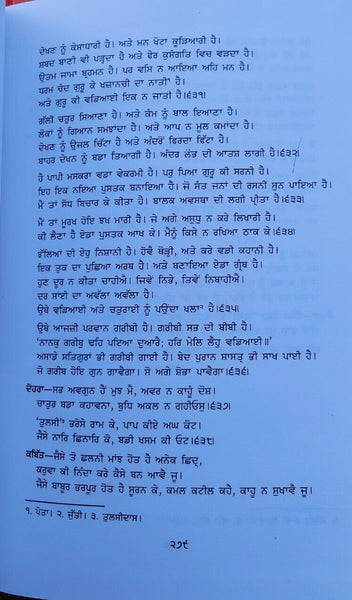 ਦੇਖਣ ਨੂੰ ਕੇਸਾਧਾਰੀ ਹੈ। ਅਤੇ ਮਨ ਖੋਟਾ ਕੂੜਿਆਰੀ ਹੈ।
ਸ਼ਬਦ ਬਾਣੀ ਵੀ ਪੜ੍ਹਦਾ ਹੈ ਅਤੇ ਫੇਰ ਕੁਸੰਗਤਿ ਵਿਚ ਵੜਦਾ ਹੈ।
ਉਤਮ ਜਾਮਾ ਬ੍ਰਹਮਨ ਹੈ। ਪਰ ਵਸਿ ਨ ਆਇਆ ਅਹਿ ਮਨ ਹੈ।
ਧਰਮ ਚੰਦ ਗੁਰੂ ਕੇ ਖਜ਼ਾਨਚੀ ਦਾ ਨਾਤੀ¹ ਹੈ।
ਅਤੇ ਗੁਰੂ ਕੀ ਵਡਿਆਈ ਇਕ ਨ ਜਾਤੀ ਹੈ।੬੩੧।
ਗੱਲੀਂ ਚਤੁਰ ਸਿਆਣਾ ਹੈ। ਅਤੇ ਕੰਮ ਨੂੰ ਬਾਲ ਇਆਣਾ ਹੈ।
ਲੋਕਾਂ ਨੂੰ ਗਿਆਨ ਸਮਝਾਂਦਾ ਹੈ। ਅਤੇ ਆਪ ਨ ਮੂਲ ਕਮਾਂਦਾ ਹੈ।
ਦੇਖਣ ਨੂੰ ਉਜਲ ਚਿੱਟਾ ਹੈ। ਅਤੇ ਅੰਦਰੋਂ ਫਿਰਦਾ ਫਿੱਟਾ ਹੈ।
ਬਾਹਰ ਦੇਖਨ ਨੂੰ ਬਡਾ ਤਿਆਗੀ ਹੈ। ਅੰਦਰ ਲੋਭ ਦੀ ਆਤਸ਼ ਲਾਗੀ ਹੈ।੬੩੨।
ਹੈ ਪਾਪੀ ਮਸਕਰਾ ਵਡਾ ਵੇਕਰਮੀ ਹੈ। ਪਰੁ ਪਿਆ ਗੁਰੂ ਕੀ ਸਰਨੀ ਹੈ।
ਇਹ ਇਕ ਨਇਆ ਪੁਸਤਕ ਬਨਾਇਆ ਹੈ। ਜੋ ਸੰਤ ਜਨਾਂ ਦੀ ਰਸਨੀਂ ਸੁਨ ਪਾਇਆ ਹੈ।
ਮੈਂ ਤਾਂ ਸੋਧ ਬਿਚਾਰ ਕੇ ਕੀਤਾ ਹੈ। ਬਾਲਕ ਅਵਸਥਾ ਦੀ ਲਗੀ ਪ੍ਰੀਤਾ ਹੈ।੬੩੩।
ਮੈਂ ਤਾਂ ਮੂਰਖ ਹੋਇ ਝਖ ਮਾਰੀ ਹੈ। ਜੇ ਅਗੇ ਅਸੁਧੁ ਨ ਕਰੇ ਲਿਖਾਰੀ ਹੈ।
ਕੀ ਲੈਣਾ ਹੈ ਏਡਾ ਪੁਸਤਕ ਆਖ ਕੇ। ਮੈਨੂੰ ਕਿਸੇ ਨ ਰਖਿਆ ਠਾਕ ਕੇ।੬੩੪।
ਝੱਲਿਆਂ ਦੀ ਏਹੁ ਨਿਸ਼ਾਨੀ ਹੈ। ਹੋਵੈ ਥੋੜ੍ਹੀ, ਅਤੇ ਕਰੇ ਵਡੀ ਕਹਾਨੀ ਹੈ।
ਇਕ ਤੁਕ ਦਾ ਪੁਛਿਆ ਅਰਥ ਹੈ। ਅਤੇ ਬਣਾਇਆ ਏਡਾ ਗ੍ਰੰਥ ਹੈ।
ਹੁਣ ਦੂਰ ਨ ਕੀਤਾ ਚਾਹੀਐ। ਜਿਵੇਂ ਨਿਭੇ, ਤਿਵੇਂ ਨਿਬਾਹੀਐ।
ਦਰ ਸਾਂਈ ਦਾ ਅਵੱਲਾ ਅਵੱਲਾ ਹੈ।
ਉਥੇ ਵਡਿਆਈ ਅਤੇ ਚਤੁਰਾਈ ਨੂੰ ਪਉਂਦਾ ਖਲਾ² ਹੈ।੬੩੫।
ਉਥੇ ਆਜਜ਼ੀ ਪਰਵਾਨ ਗਰੀਬੀ ਹੈ। ਗਰੀਬੀ ਸਭ ਦੀ ਬੀਬੀ ਹੈ।
'ਨਾਨਕੁ ਗਰੀਬੁ ਢਹਿ ਪਇਆ ਦੁਆਰੈ; ਹਰਿ ਮੇਲਿ ਲੈਹੁ ਵਡਿਆਈ॥'
ਅਸਾਡੇ ਸਤਿਗੁਰਾਂ ਭੀ ਗਰੀਬੀ ਗਾਈ ਹੈ। ਬੇਦ ਪੁਰਾਨ ਸ਼ਾਸਤ੍ਰ ਭੀ ਸਾਖ ਪਾਈ ਹੈ।
ਜੋ ਗਰੀਬ ਹੋਇ ਗੁਨ ਗਾਵੈਗਾ। ਸੋ ਅਗੇ ਸ਼ੋਭਾ ਪਾਵੈਗਾ।੬੩੬।
ਦੋਹਰਾ—ਸਭ ਅਵਗੁਨ ਹੈਂ ਮੁਝ ਮੈ, ਅਵਰ ਨ ਕਾਹੂੰ ਦੋਸ਼।
ਚਾਤੁਰ ਬਡਾ ਕਹਾਵਨਾ, ਬੁਧਿ ਅਕਲ ਨ ਗਹੀਓਸੁ।੬੩੭।
'ਤੁਲਸੀ'³ ਭਰੋਸੇ ਰਾਮ ਕੇ, ਪਾਪ ਕੀਏ ਅਘ ਕੋਟ।
ਜੈਸੇ ਨਾਰਿ ਛਿਨਾਰਿ ਕੋ, ਬਡੀ ਖਸਮ ਕੀ ਓਟ।੬੩੮।
ਕਬਿੱਤ—ਜੈਸੇ ਤੋ ਛਲਨੀ ਮਾਂਝ ਹੋਤ ਹੈ ਅਨੇਕ ਛਿਦ੍ਰ,
ਕਰੂਵਾ ਕੀ ਨਿੰਦਾ ਕਰੇ ਕੈਸੇ ਬਨ ਆਵੈ ਜੂ।
ਜੈਸੇ ਬਾਬੂਰ ਭਰਪੂਰ ਹੋਤ ਹੈ ਸੂਰਨ ਕੇ, ਕਮਲ ਕਟੀਲ ਕਹੈ, ਕਾਹੂ ਨ ਸੁਖਾਵੈ ਜੂ।
੧. ਪੋਤਾ। ੨. ਜੁੱਤੀ। ੩. ਤੁਲਸੀਦਾਸ।
੨੭੯